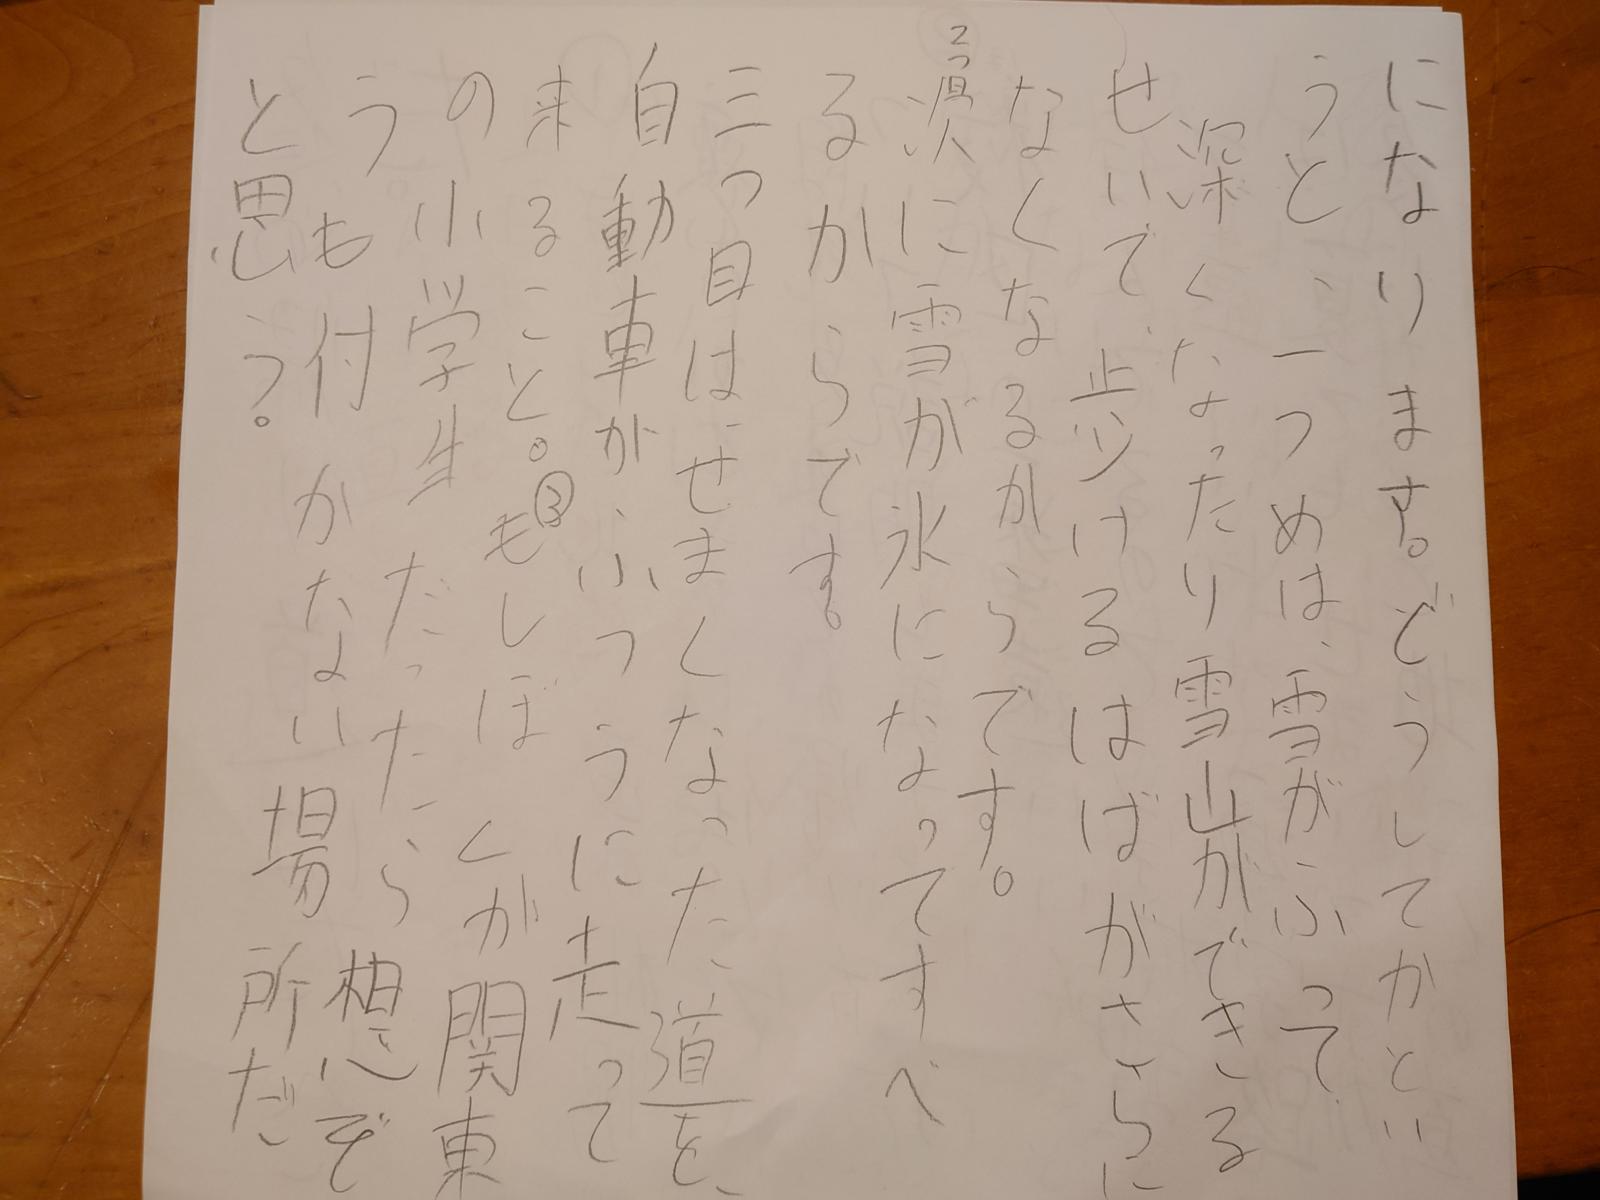 になります。どうしてかとい
うと、一つめは、雪がふって、
深くなったり雪山ができる
せいで、歩けるはばがさらに
なくなるからです。
2つ目次に雪が氷になってすべ
るからです。
三つ目は、せまくなった道を、
自動車が、ふつうに走って
来ること。③もしぼくが関東
の小学生だったら想ぞ
うも付かない場所だ
と思う。